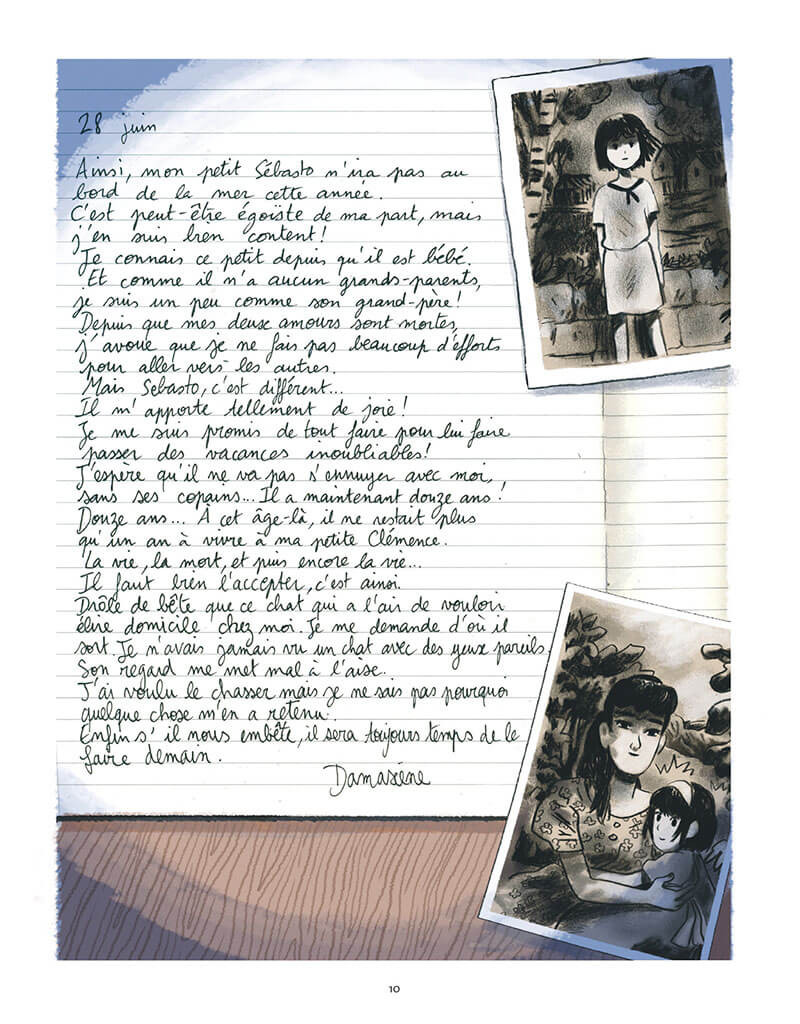 28 juin
Ainsi, mon petit Sébasto n'ira pas au
bord de la mer cette année.
C'est peut-être égoïste de ma part, mais
j'en suis bien content !
Je connais ce petit depuis qu'il est bébé.
Et comme il n'a aucun grands-parents,
je suis un peu comme son grand-père !
Depuis que mes deux amours sont mortes,
j'avoue que je ne fais pas beaucoup d'efforts
pour aller vers les autres.
Mais Sebasto, c'est différent...
Il m'apporte tellement de joie !
Je me suis promis de tout faire pour lui faire
passer des vacances inoubliables !
J'espère qu'il ne va pas s'ennuyer avec moi,
sans ses copains... Il a maintenant douze ans !
Douze ans... À cet âge-là, il ne restait plus
qu'un an à vivre à ma petite Clémence.
La vie, la mort, et puis encore la vie...
Il faut bien l'accepter, c'est ainsi.
Drôle de bête que ce chat qui a l'air de vouloir
élire domicile chez moi. Je me demande d'où il
sort. Je n'avais jamais vu un chat avec des yeux pareils.
Son regard me met mal à l'aise.
J'ai voulu le chasser mais je ne sais pas pourquoi
quelque chose m'en a retenu.
Enfin s'il nous embête, il sera toujours temps de le
faire demain.
Damascène
10